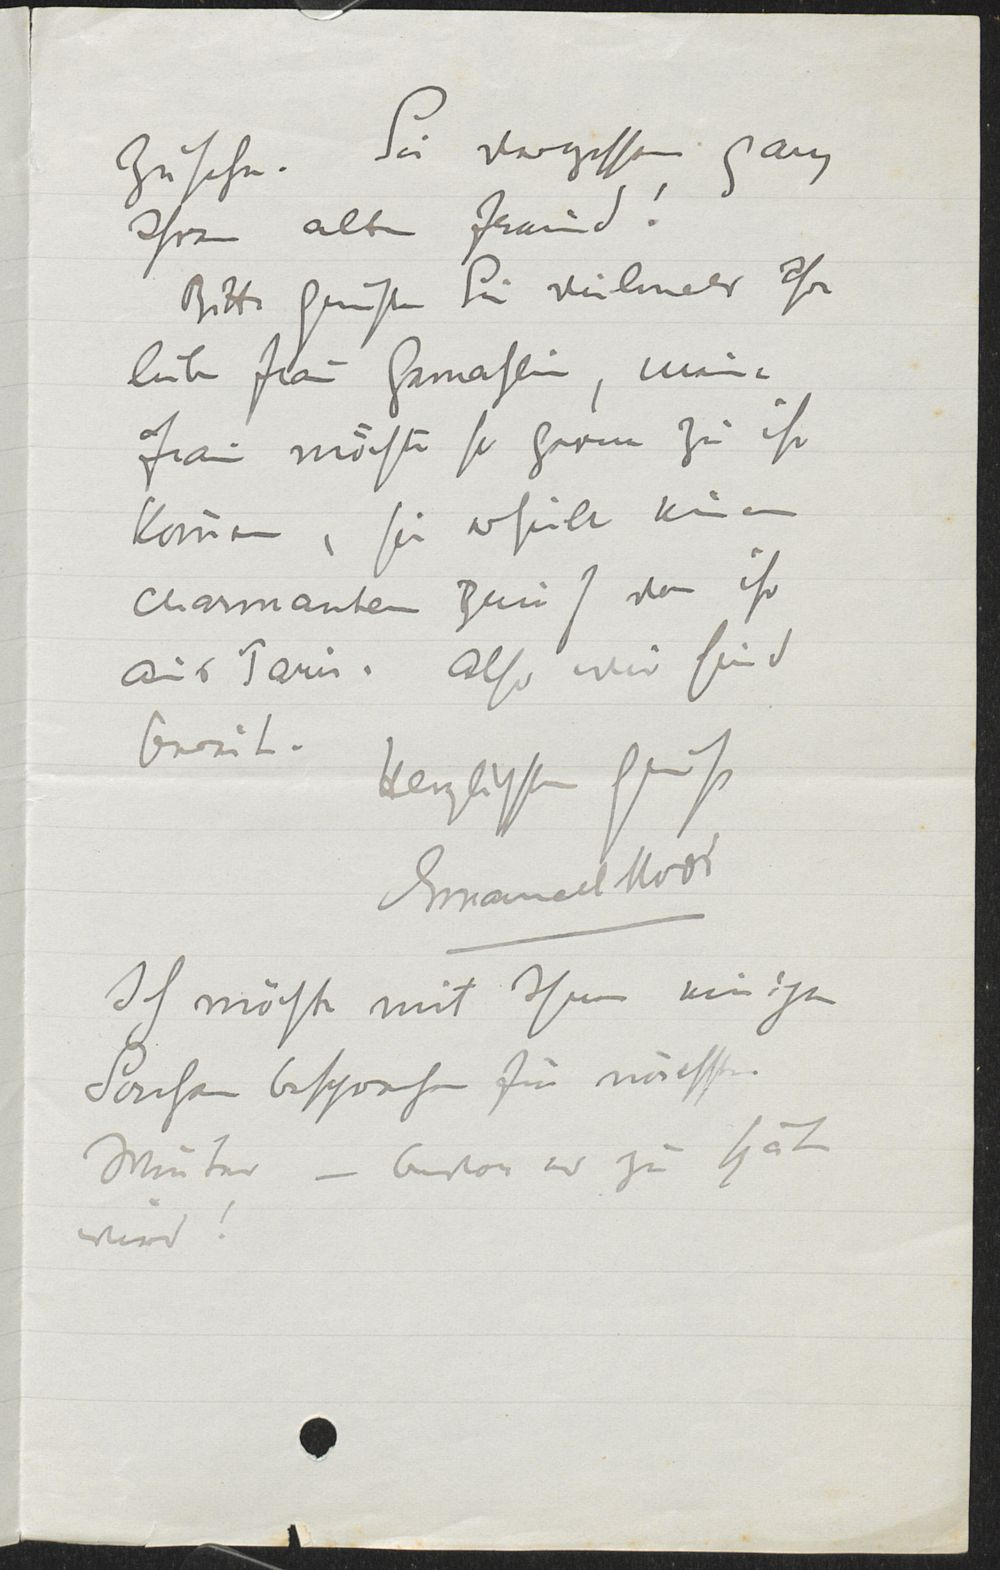 zusehn. Sie vergessen ganz
Ihren alten Freund!
Bitte grüßen Sie vielmals Ihre
liebe Frau Gemahlin, meine
Frau möchte so gerne zu ihr
kommen, sie erhielt einen
charmanten Brief von ihr
aus Paris. Also wir sind
bereit.
Herzlichsten Gruß
Emanuel Moór
Ich möchte mit Ihnen einige
Sachen besprechen für nächsten
Winter – bevor es zu spät
wird!